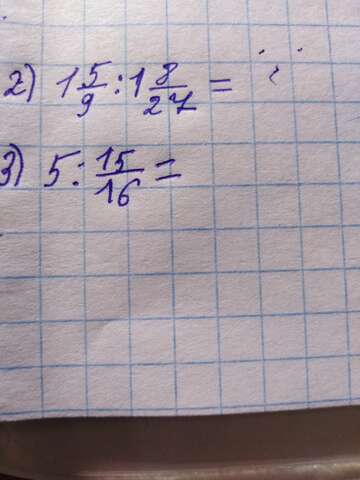 2) 1 5/9 : 1 8/27 =
3) 5 : 15/16 =